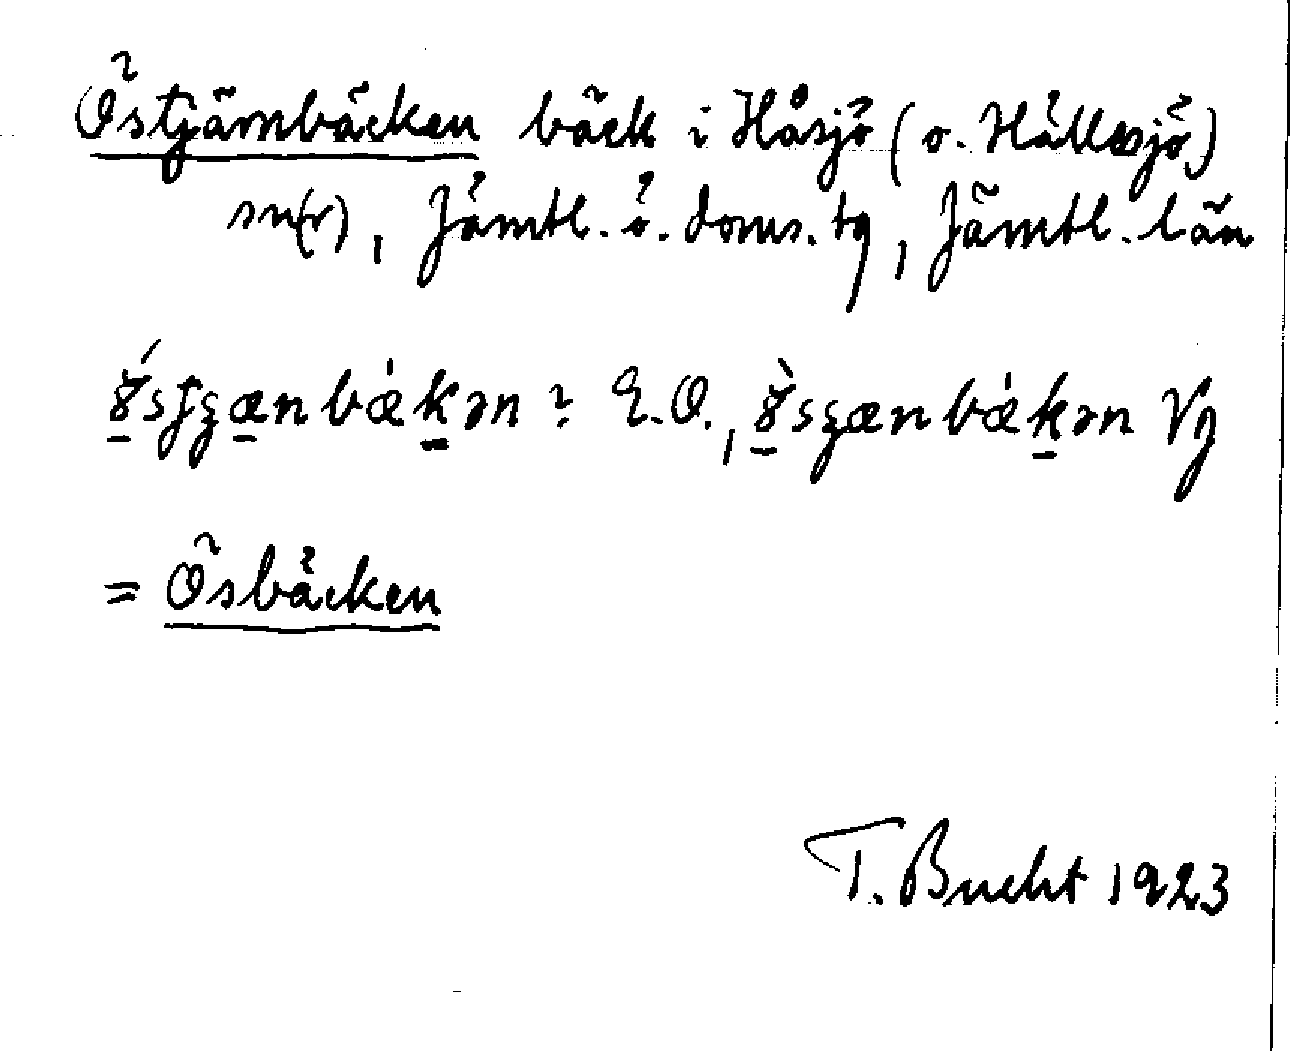 Östjärnbäcken bäck i Håsjö (o. Hällesjö)
sn(r), Jämtl. ö. doms. tg, Jämtl. län
E.O., Vg
= Ösbäcken
T. Bucht 1923